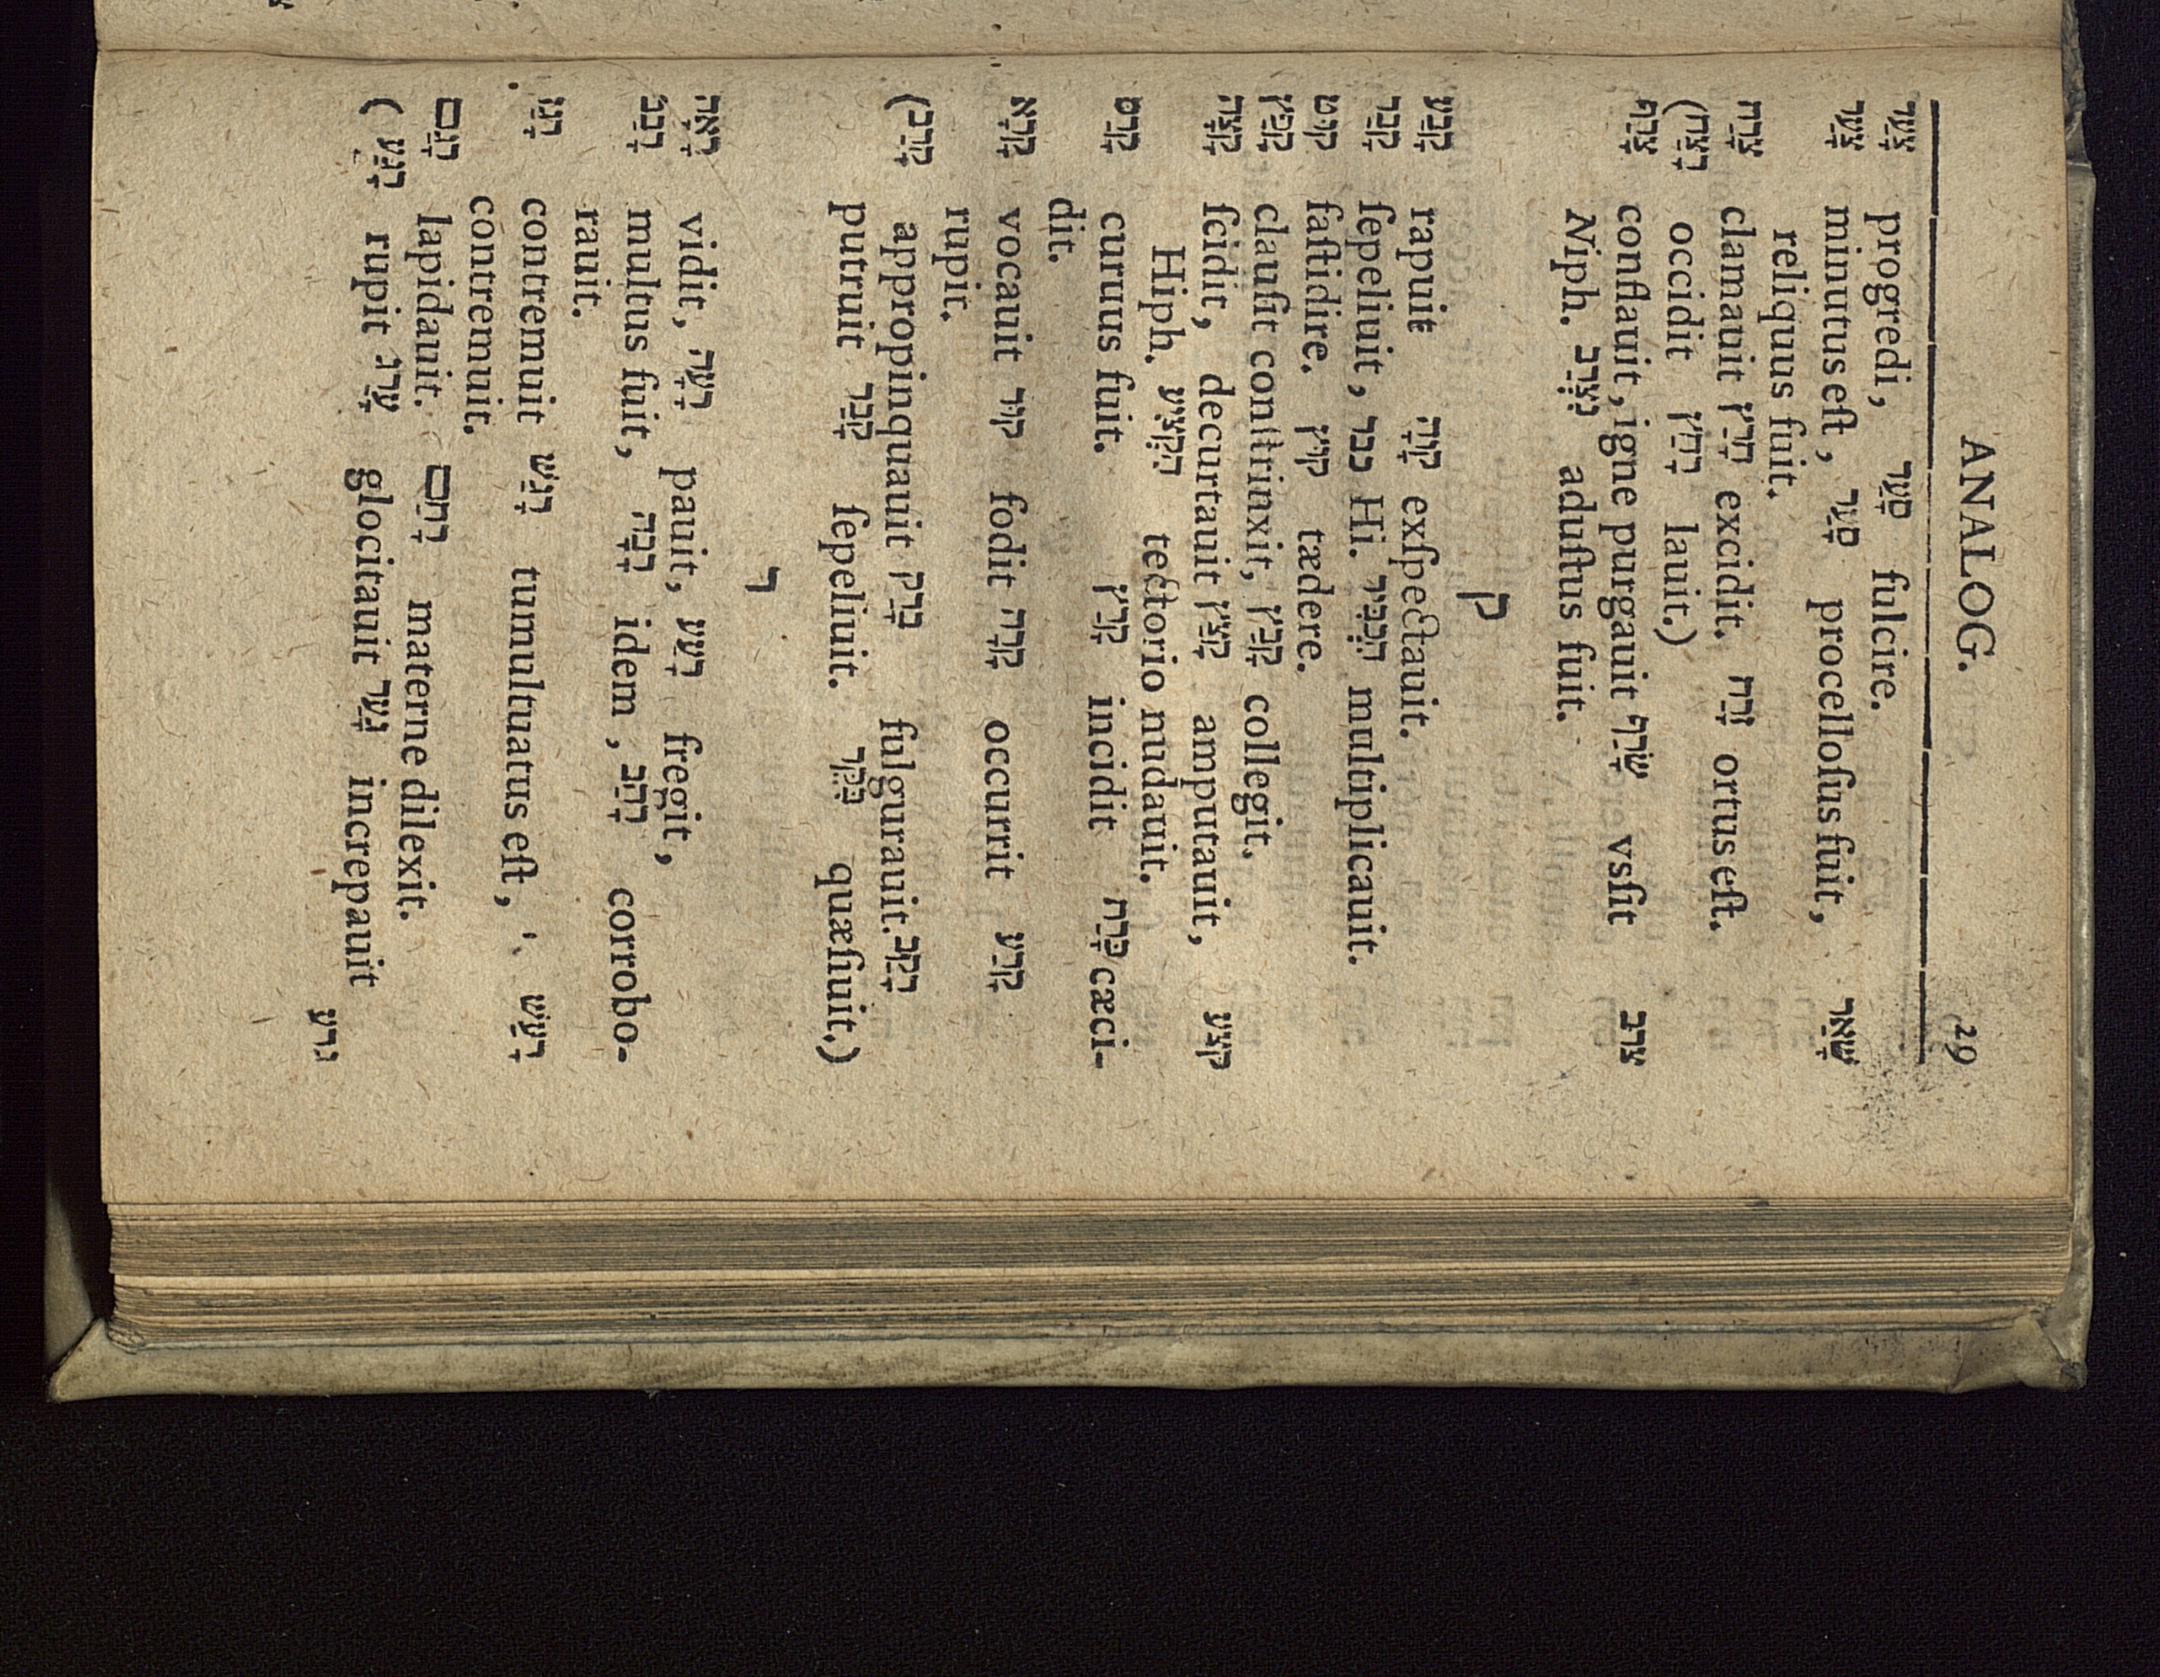 ANALOG. 29
צָעַד progredi, סָעַד fulcire.
צָעַר minutus eſt, סָעַר procelloſus fuit, שָׁאַר
reliquus fuit.
צָרַח clamauit חָרַץ excidit. זָרַח ortus eſt.
(רָצַח occidit רָחַץ lauit.)
צָרַף conflauit, igne purgauit שָׂרַף vsſit צרב
Niph. נִצְרַב aduſtus fuit.
ק
קָבַע rapuit קָוָה exſpectauit.
קָבַר ſepeliuit, כבר Hi. הִכְבִּיר multiplicauit.
קוּט faſtidire. קוּץ tædere.
קָפַץ clauſit conſtrinxit, קָבַץ collegit.
קָצָה ſcidit, decurtauit קָצַץ amputauit, קָצַע
Hiph. הִקְצִיעַ tectorio nudauit.
קָרַס curuus fuit. קָרַץ incidit כָּרַת cæci-
dit.
קָרָא vocauit קוּר fodit קָרָה occurrit קָרַע
rupit.
(קָרַב appropinquauit בָּרַק fulgurauit. רָקַב
putruit קָבַר ſepeliuit. בִּקֵּר quæſiuit.)
ר
רָאָה vidit, רָעָה pauit, רָעַע fregit,
רָבַב multus fuit, רָבָה idem, רָהַב corrobo-
rauit.
רָגַז contremuit רָגַשׁ tumultuatus eſt, רָעַשׁ
contremuit.
רָגַם lapidauit. רָחַם materne dilexit.
(רָגַע rupit עָרַג glocitauit גָּעַר increpauit
גרע